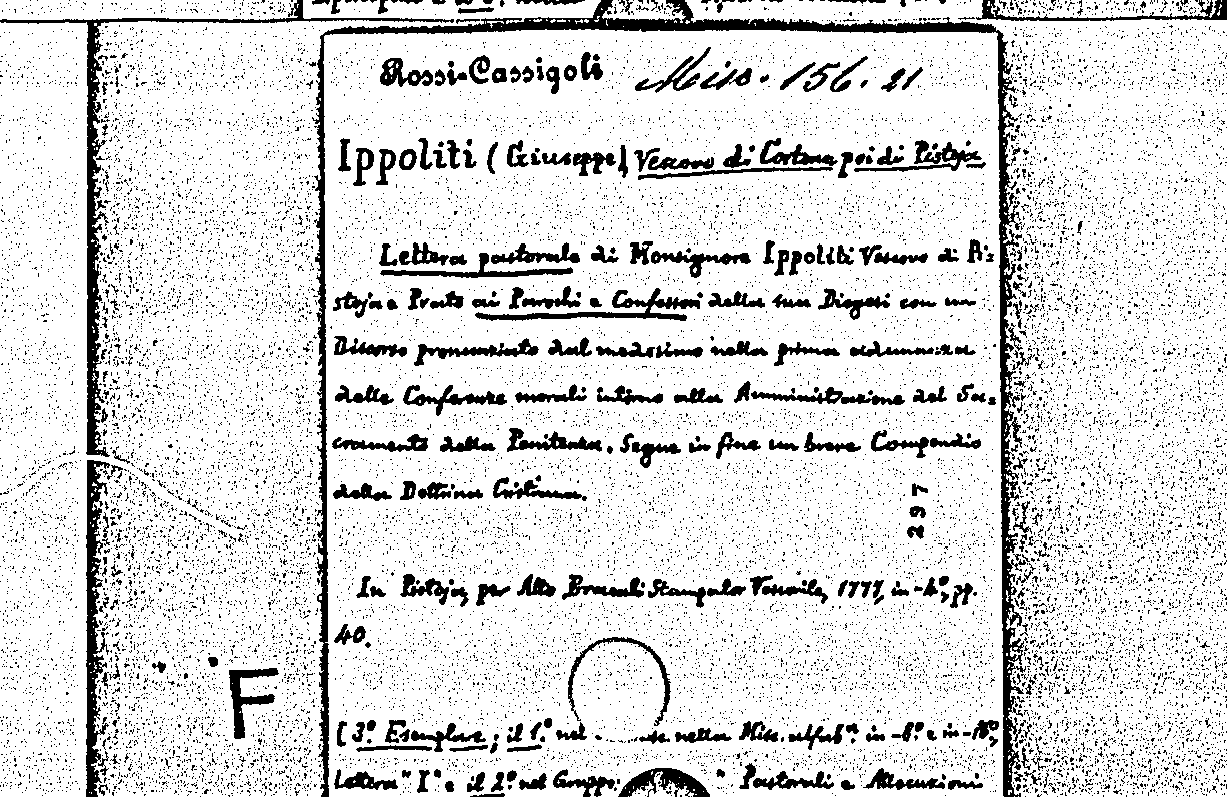 Rossi-Cassigoli Misc. 156. 21
Ippoliti (Giuseppe) Vescovo di Cortona poi di Pistoja
Lettera pastorale di Monsignore Ippoliti Vescovo di Pi=
stoja e Prato ai Parochi e Confessori della sua Diogesi con un
Discorso pronunziato dal medesimo nella prima adunanza
delle Conferenze morali intorno alla Amministrazione del Sa=
cramento della Penitenza. Segue in fine un breve Compendio
della Dottrina Cristiana.
297
In Pistoja, per Atto Bracali Stampator Vescovile, 1777, in-4°, pp.
40.
F
[3° Esemplare; il 1° nel nella Misc. alfab. in-8° e in-16°,
lettera "I" e il 2° nel Gruppo " Pastorali e Allocuzioni